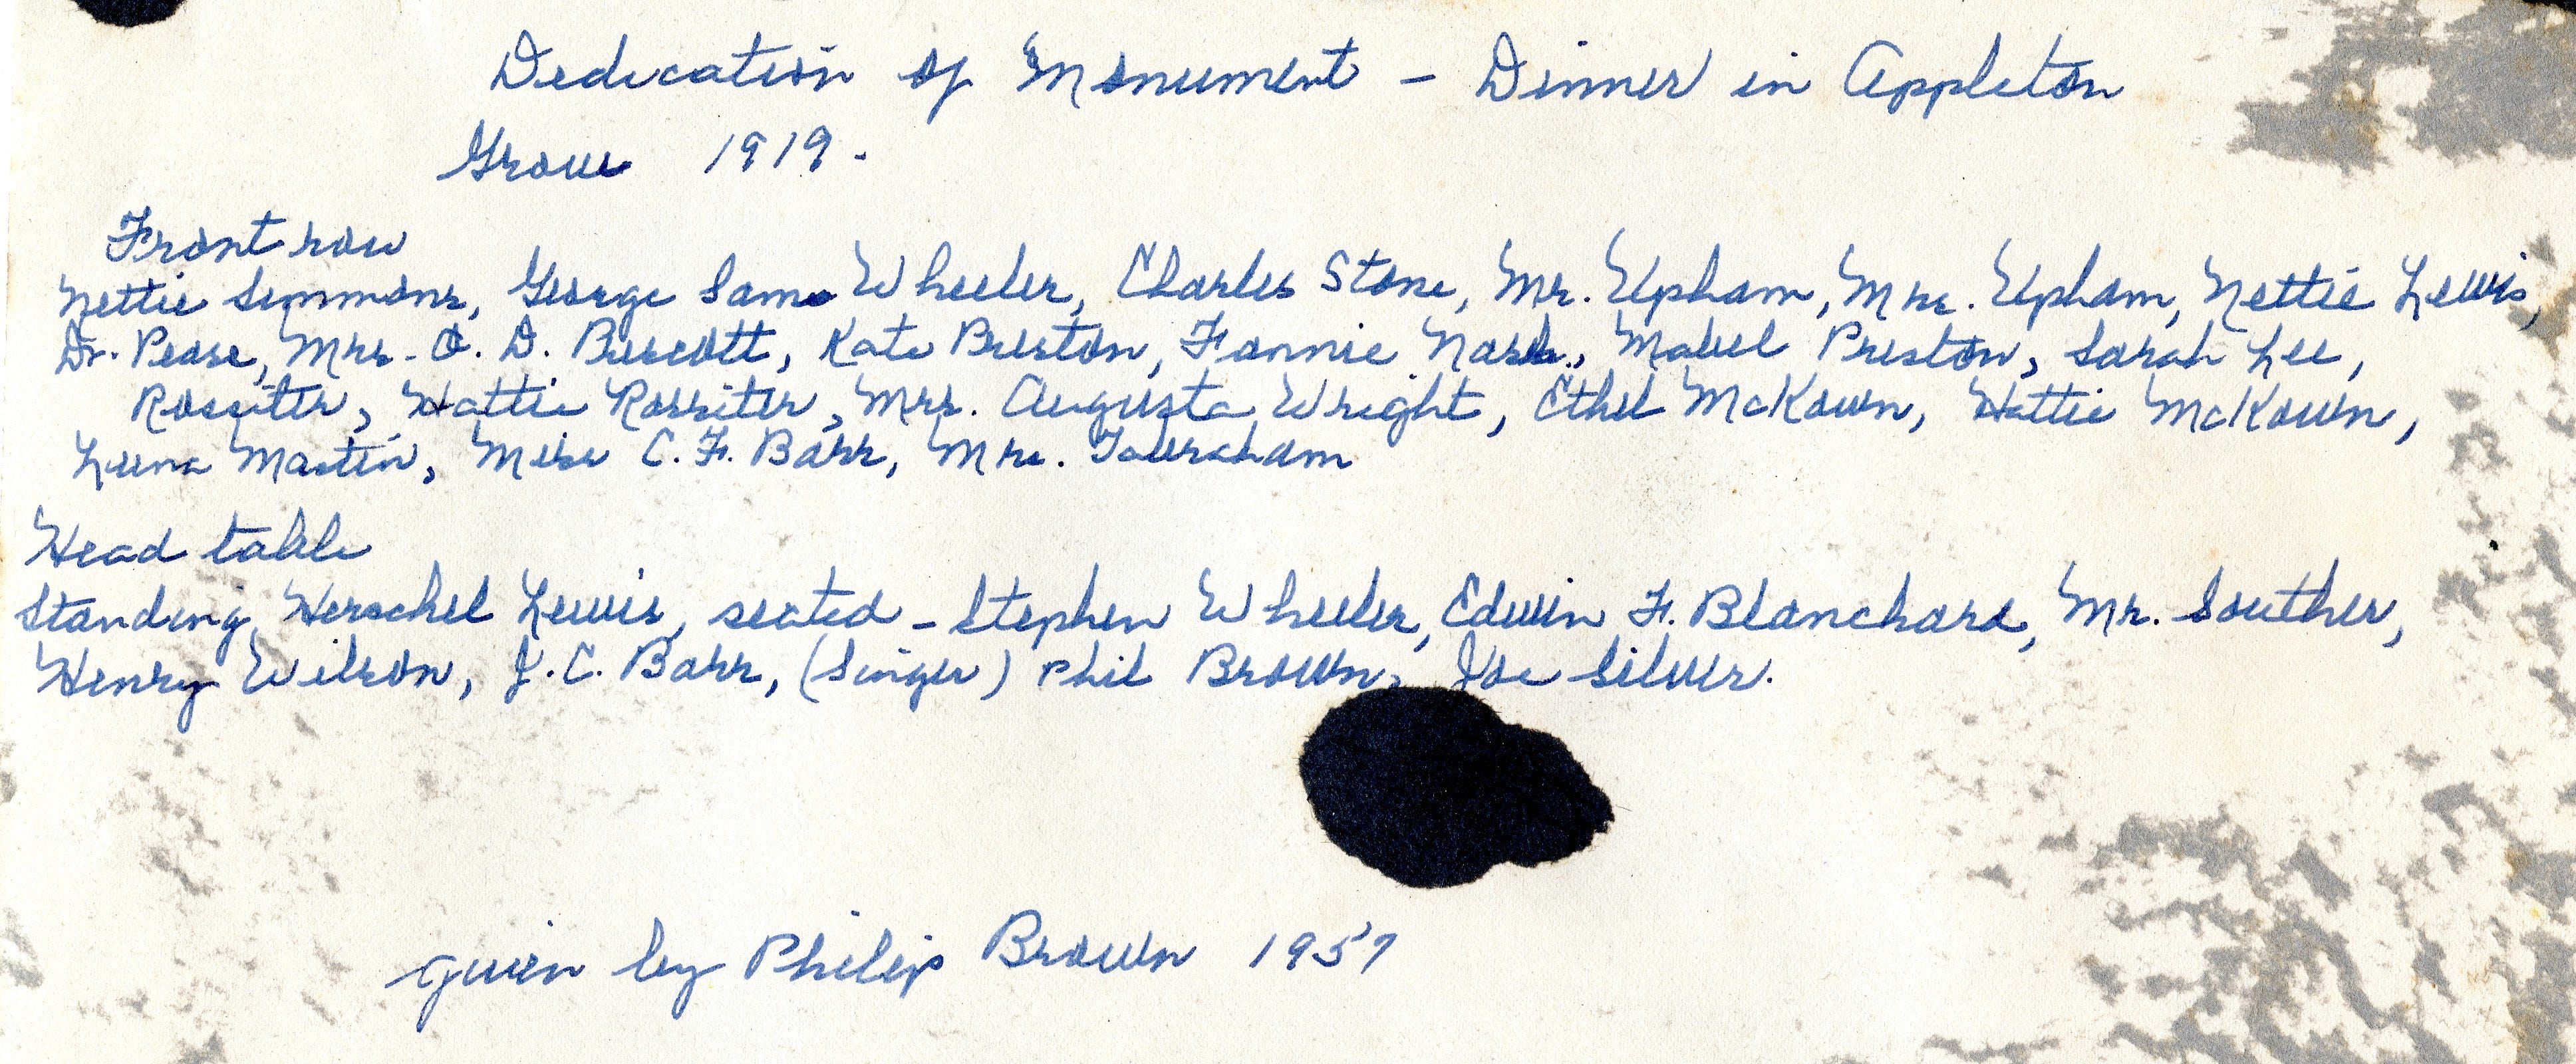 Dedication of Monument - Dinner in Appleton
Grove 1919.
Front row
Nettie Simmons, George Sam Wheeler, Charles Stone, Mr. Upham, Mrs. Upham, Nettie Lewis,
Dr. Pease, Mrs. O. D. Prescott, Kate Preston, Fannie Nash, Mabel Preston, Sarah Lee,
Rossiter, Hattie Rossiter, Mrs. Augusta Wright, Ethel McKown, Hattie McKown,
Luna Mastin, Miss C. F. Barr, Mrs.
Head table
Standing, Herschel Lewis, seated - Stephen Wheeler, Edwin F. Blanchard, Mr. Souther,
Henry Wilson, J. C. Barr, (Singer) Phil Brown, Joe Silver.
given by Philip Brown 1957